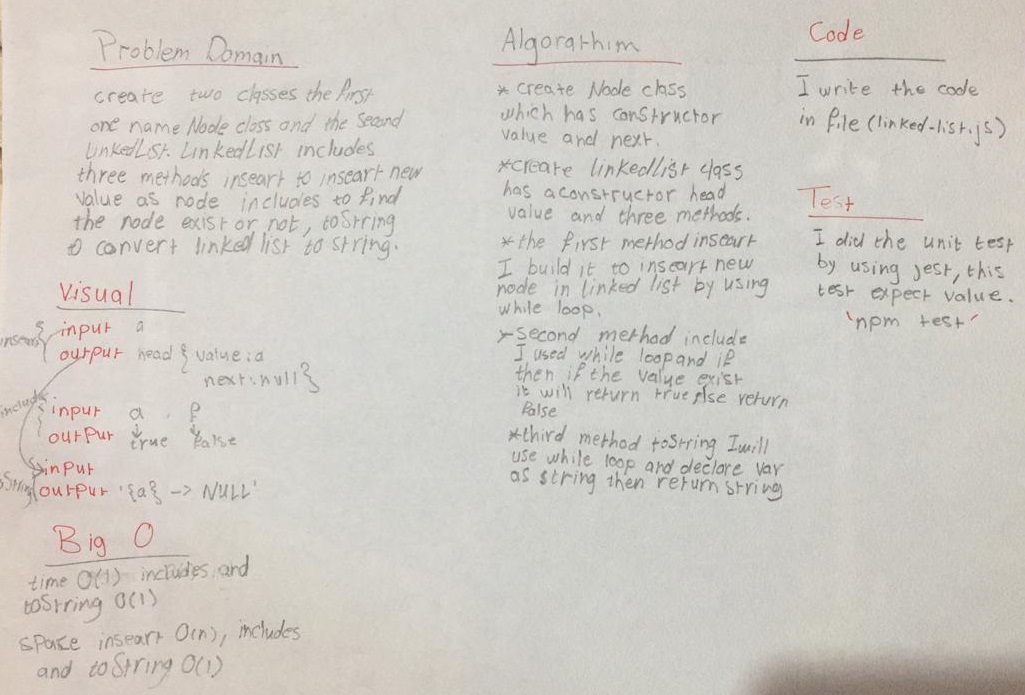 Problem Domain
create two classes the first
one name Node class and the Second
LinkedList. LinkedList includes
three methods inseart to inseart new
value as node includes to find
the node exist or not, toString
to convert linked list to string.
Visual
inseart { input a
output head { value : a
next : null }
include { input a , f
output true false
input
output '{a} -> NULL'
Big O
time O(1) includes and
toString O(1)
space inseart O(n), includes
and toString O(1)
Algorathim
* create Node class
which has constructor
value and next.
* create linkedlist class
has a constructor head
value and three methods.
* the first method inseart
I build it to inseart new
node in linked list by using
while loop.
* second method include
I used while loop and if
then if the value exist
it will return true else return
false
* third method toString I will
use while loop and declare var
as string then return string
Code
I write the code
in file (linked-list.js)
Test
I did the unit test
by using jest, this
test expect value.
'npm test'